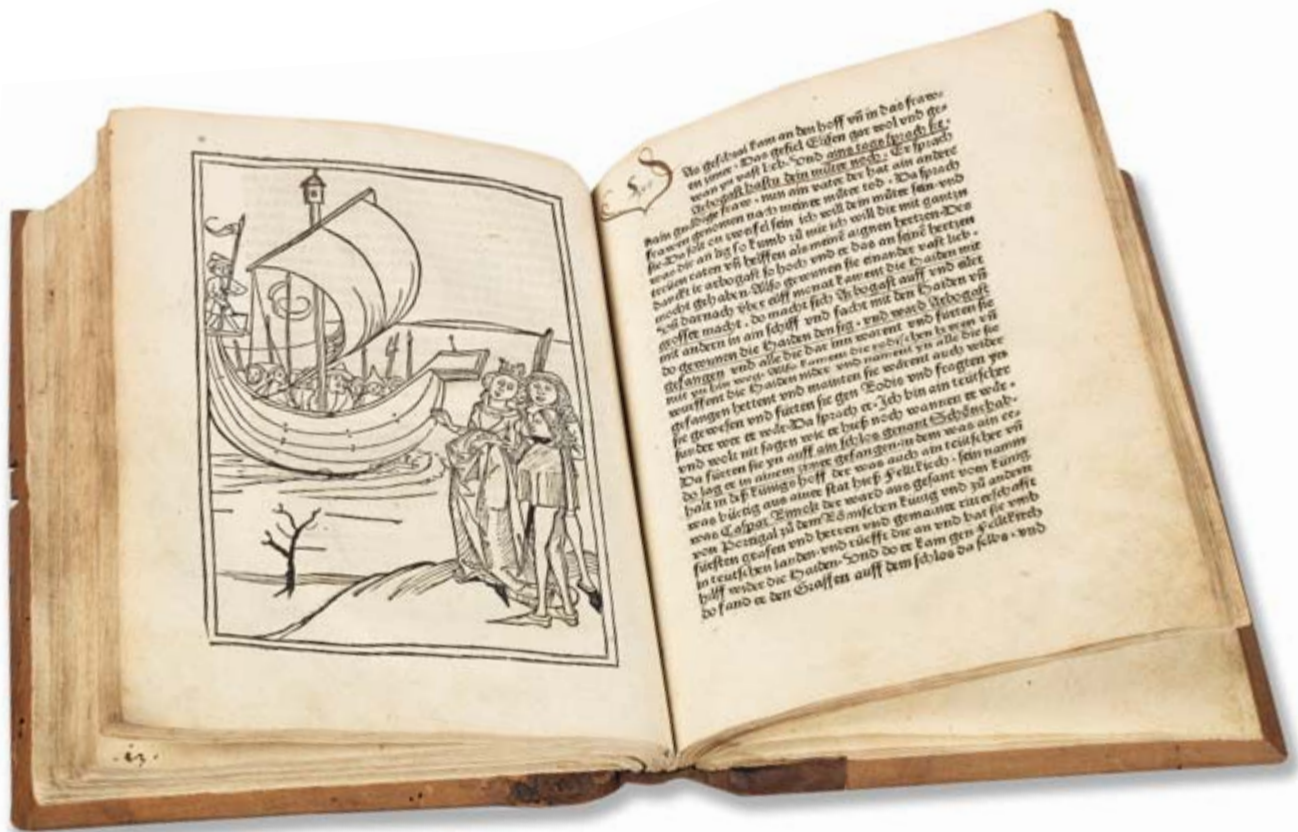 As geschrai kam an den hoff vñ in das frawen
zimer. Das gefiel Elisen gar wol vnd gewan
yn vast lieb. Vnd ains tags sprach sie.
Arbogast hastu dein můter noch. Er sprach
nain gnädige fraw. nun ain vater der hat ain andere
frawen genomen nach meiner můter tod. Da sprach
sie. Da solt on zweifel sein ich will dein můter sein vnd
was dir an lig so kumb zů mir ich will dir mit gantzn
treüen raten vñ helffen als meinē aignen hertzen. Des
danckt ir arbogast so hoch vnd er das an seinē hertzen
mocht gehaben. Also gewunen sie einander vast lieb.
Vñ darnach vber eilff monat kament die Haiden mit
grosser macht. do macht sich Arbogast auff vnd
mit andern in ain schiff vnd facht mit den Haiden vñ
do gewunen die Haiden den sig. vnd ward Arbogast
gefangen vnd alle die dar inn warent vnd fürten sie
mit yn hin weg. Also kament die rodischen herren vñ
wurffent die Haiden nider vnd nament yn alle die sie
gefangen hettent vnd mainten sie wärent auch wider
sie gewesen vnd fürten sie gen Rodis vnd fragten yn
sunder wer er wär. Da sprach er. Ich bin ain teütscher
vnd wolt nit sagen wie er hieß noch wannen er wär.
Da fürten sie yn auff ain schlos genant
do lag er in ainem zimer gefangen. in dem was ain
halt in deß künigs hoff der was auch ain teütscher vñ
was bürtig aus ainer stat hieß Felltkirch. sein namm
was Caspar der ward aus gesant vom künig
von Portigal zů dem Römschen künig vnd zů andern
fürsten grafen vnd herren vnd gemainer ritterschafft
in teutschen landen. vnd rüefft die an vnd bat sie vmb
hilff wider die Haiden. Vnd do er kam gen Felltkirch
do fand er den Graffen auff dem schlos da selbs. vnd